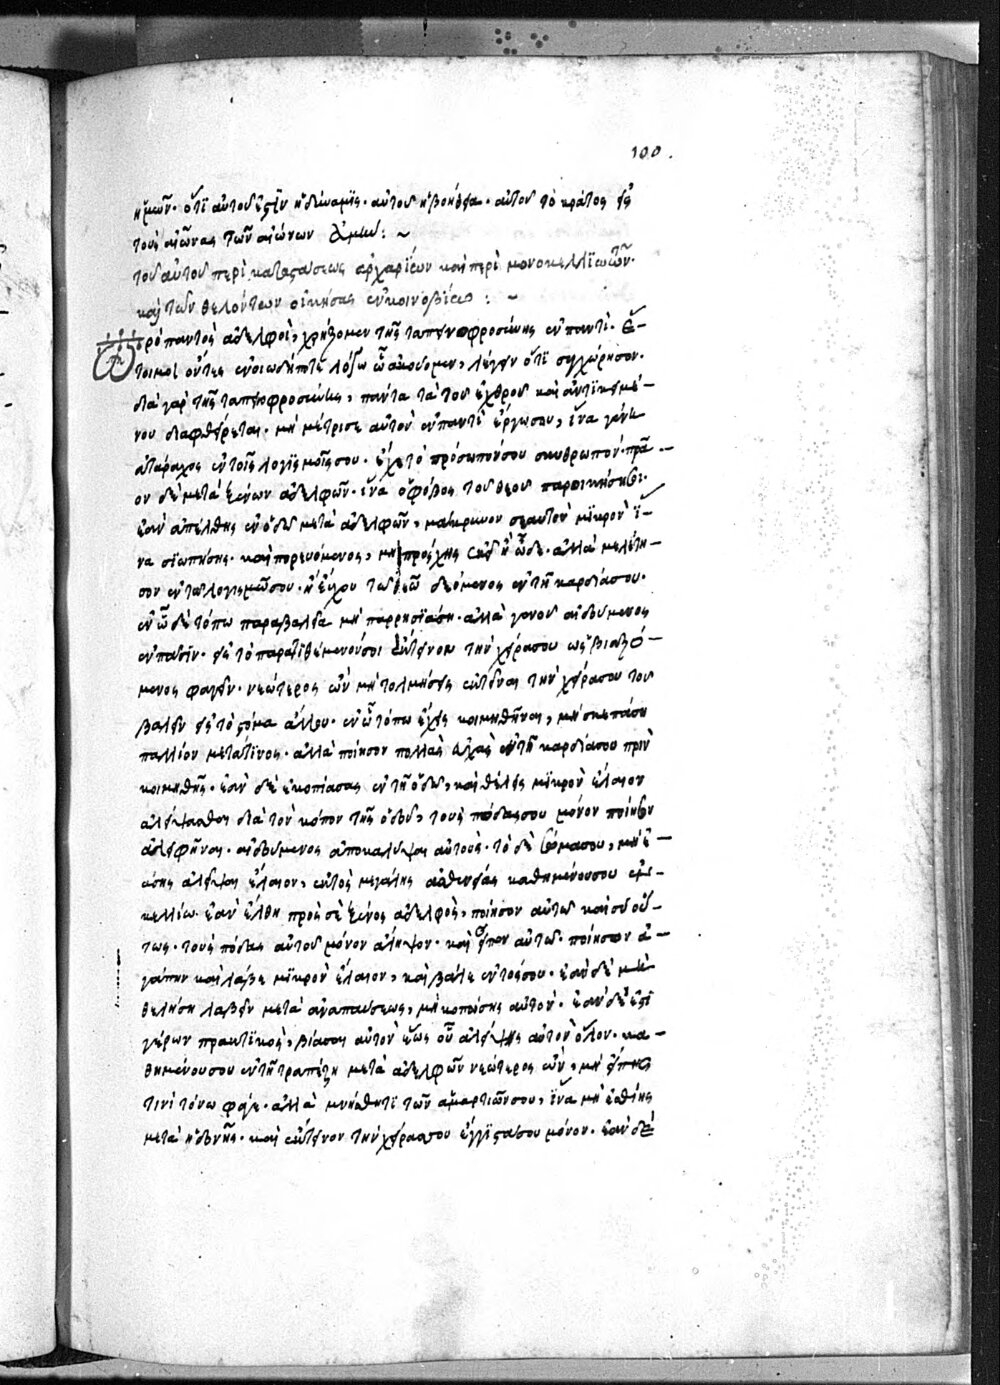 100.
ἡμῶν. ὅτι αὐτοῦ ἐστὶν ἡ δύναμις. αὐτοῦ ἡ βοήθεια. αὐτοῦ τὸ κράτος εἰς
τοὺς αἰῶνας τῶν αἰώνων ἀμήν: ~
τοῦ αὐτοῦ περὶ καταστάσεως ἀρχαρίων καὶ περὶ μονοκελλιωτῶν.
καὶ τῶν θελόντων οἰκῆσαι ἐν κοινοβίῳ : ~
Πρὸ παντὸς ἀδελφοὶ, χρήζομεν τῆς ταπεινοφροσύνης ἐν παντὶ. ἕ-
τοιμοι ὄντες ἐν οἱωδήποτε λόγω ὧ ἀκούομεν, λέγειν ὅτι συγχώρησον.
διὰ γὰρ τῆς ταπεινοφροσύνης, πάντα τὰ τοῦ ἐχθροῦ καὶ ἀντικειμέ-
νου διαφθείρεται. μὴ μέτρισε αὐτὸν ἐν παντὶ ἔργω σου, ἵνα γένη
ἀτάραχος ἐν τοῖς λογισμοῖς σου. ἔχε τὸ πρόσωπόν σου σκυθρωπόν. πρᾶ-
ον δὲ μετὰ ξένων ἀδελφῶν. ἵνα ὁ φόβος τοῦ θεοῦ παροικήση σοι.
ἐὰν ἀπέλθης ἐν ὁδῶ μετὰ ἀδελφῶν, μάκρυνον σεαυτὸν μικρὸν ἵ-
να σιωπήσης. καὶ πορευόμενος, μὴ προσχῆς ἐκεῖ ἢ ὧδε. ἀλλὰ μελέτη-
σον ἐν τῶ λογισμῶ σου. ἢ εὔχου τῶ θεῶ δεόμενος ἐν τῆ καρδία σου.
ἐν ὧ δὲ τόπω παραβάλης μὴ παρρησιάση. ἀλλὰ γίνου αἰδούμενος
ἐν πᾶσιν. εἰς τὸ παρατιθέμενόν σοι ἔκτεινον τὴν χεῖρα σου ὡς βιαζό-
μενος φαγεῖν. νεώτερος ὢν μὴ τολμήσης ἐκτεῖναι τὴν χεῖρα σου τοῦ
βαλεῖν εἰς τὸ στόμα ἄλλου. ἐν ὧ τόπω ἔχης κοιμηθῆναι, μὴ σκεπάση
παλλίον μετά τινος. ἀλλὰ ποίησον πολλὰς εὐχὰς ἐν τῆ καρδία σου πρὶν
κοιμηθῆς. ἐὰν δὲ ἐκοπίασας ἐν τῆ ὁδῶ, καὶ θέλης μικρὸν ἔλαιον
ἀλείψασθαι διὰ τὸν κόπον τῆς ὁδοῦ, τοὺς πόδας σου μόνον ποίησον
ἀλειφῆναι. αἰδούμενος ἀποκαλύψαι αὐτούς. τὸ δὲ σῶμα σου, μὴ ἐ-
άσης ἀλεῖψαι ἔλαιον, ἐκτὸς μεγάλης ἀσθενείας καθημένου σου ἐν
κελλίω. ἐὰν ἔλθη πρὸς σὲ ξένος ἀδελφὸς, ποίησον αὐτῶ καὶ σὺ οὕ-
τως. τοὺς πόδας αὐτοῦ μόνον ἄλειψον. καὶ εἶπον αὐτῶ. ποίησον ἀ-
γάπην καὶ λάβε μικρὸν ἔλαιον, καὶ βάλε ἐν ποσί σου. ἐὰν δὲ μὴ
θελήση λαβεῖν μετὰ ἀναπαύσεως, μὴ κοπώσης αὐτὸν. ἐὰν δὲ ἐστὶ
γέρων πρακτικὸς, βίασον αὐτὸν ἕως οὗ ἀλείψης αὐτὸν ὅλον. κα-
θημένου σου ἐν τῆ τραπέζη μετὰ ἀδελφῶν νεώτερος ὢν, μὴ εἴπης
τινὶ τόνω φάγε. ἀλλὰ μνήσθητι τῶν ἁμαρτιῶν σου, ἵνα μὴ ἐσθίης
μετὰ ἡδονῆς. καὶ ἔκτεινον τὴν χεῖρα σου ἔγγιστά σου μόνον. ἐὰν δὲ